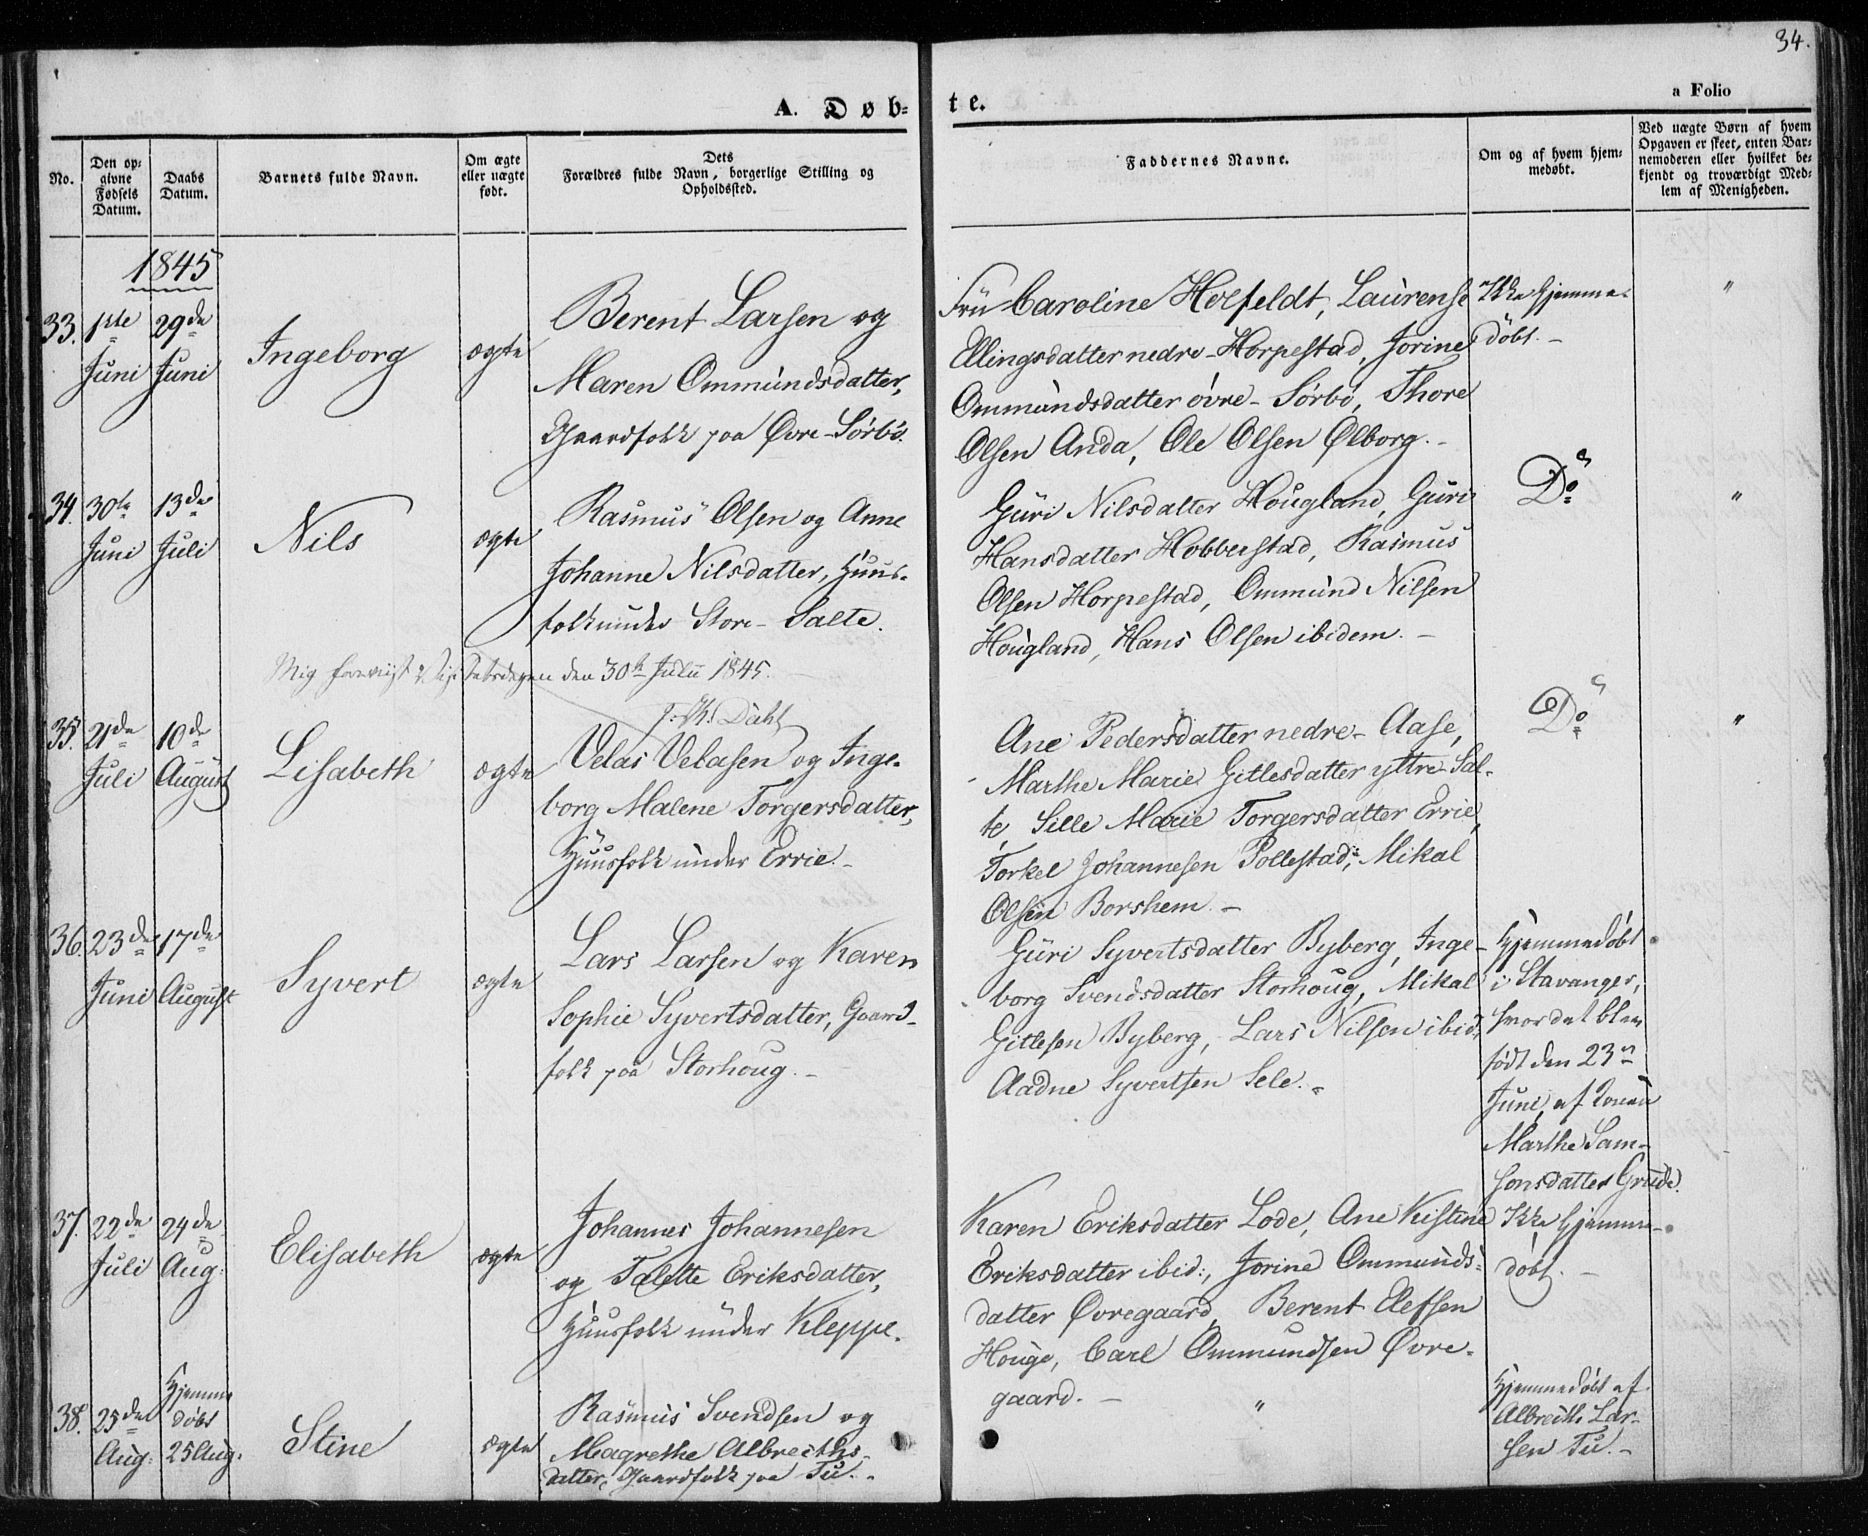 34.
A. Døb-
te.
a Folio
No.
Den op-
givne
Fødsels
Datum.
Daabs
Datum.
Barnets fulde Navn.
Om ægte
eller uægte
født.
Dets
Forældres fulde Navn, borgerlige Stilling og
Opholdssted.
Faddernes Navne.
Om og af hvem hjem-
medøbt.
Ved uægte Børn af hvem
Opgaven er skeet, enten Bar-
nemoderen eller hvilket be-
kjendt og troværdigt Med-
lem af Menigheden.
1845
33.
1ste
Juni
29de
Juni
Ingeborg
ægte
Berent Larsen og
Maren Ommundsdatter,
Gaardfolk paa Øvre-Sörbö.
Fru Caroline Holfeldt, Laurense
Ellingsdatter nedre-Horpestad, Jorine
Ommundsdatter övre-Sörbö, Thore
Olsen Anda, Ole Olsen Ølborg.-
Ikke hjemme-
döbt.-
"
34.
30te
Juni
13de
Juli
Nils
ægte
Rasmus Olsen og Anne
Johanne Nilsdatter, Huus-
folk under Store-Salte.
Guri Nilsdatter Hougland, Guri
Hansdatter Hobberstad, Rasmus
Olsen Horpestad, Ommund Nilsen
Hougland, Hans Olsen ibidem.-
Do
"
Mig foreviist den 30te Julii 1845.
Dahl
35.
21de
Juli
10de
August
Lisabeth
ægte
Velas Velasen og Inge-
borg Malene Torgersdatter,
Huusfolk under Errie.-
Ane Pedersdatter nedre-Aase,
Marthe Marie Gitlesdatter yttre Sal-
te, Sille Marie Torgersdatter Errie,
Torkel Johannesen Pollestad, Mikal
Olsen Borshem.-
Do
"
36.
23de
Juni
17de
August
Syvert
ægte
Lars Larsen og Karen
Sophie Syvertsdatter, Gaard-
folk paa Storhoug.-
Guri Syvertsdatter Byberg, Inge-
borg Svendsdatter Storhoug, Mikal
Gitlesen Byberg, Lars Nilsen ibid.,
Aadne Syvertsen Sele.-
Hjemmedöbt
i Stavanger,
hvor det blev
födt den 23de
Juni, af Konen
Marthe Sam-
sonsdatter Grude.
37.
22de
Juli
24de
Aug:
Elisabeth
ægte
Johannes Johannesen
og Talette Eriksdatter,
Huusfolk under Kleppe.
Karen Eriksdatter Lode, Ane Kistine
Eriksdatter ibid:, Jorine Ommunds-
datter Øvregaard, Berent Elefsen
Houge, Carl Ommundsen Øvre-
gaard.-
Ikke hjemme-
döbt.-
38.
25de
Aug:
Hjemme
döbt
25 Aug.
Stine
ægte
Rasmus Svendsen og
Magrethe Albrecths-
datter, Gaardfolk paa Tu.-
"
Hjemmedöbt af
Albrecth Lar-
sen Tu.-